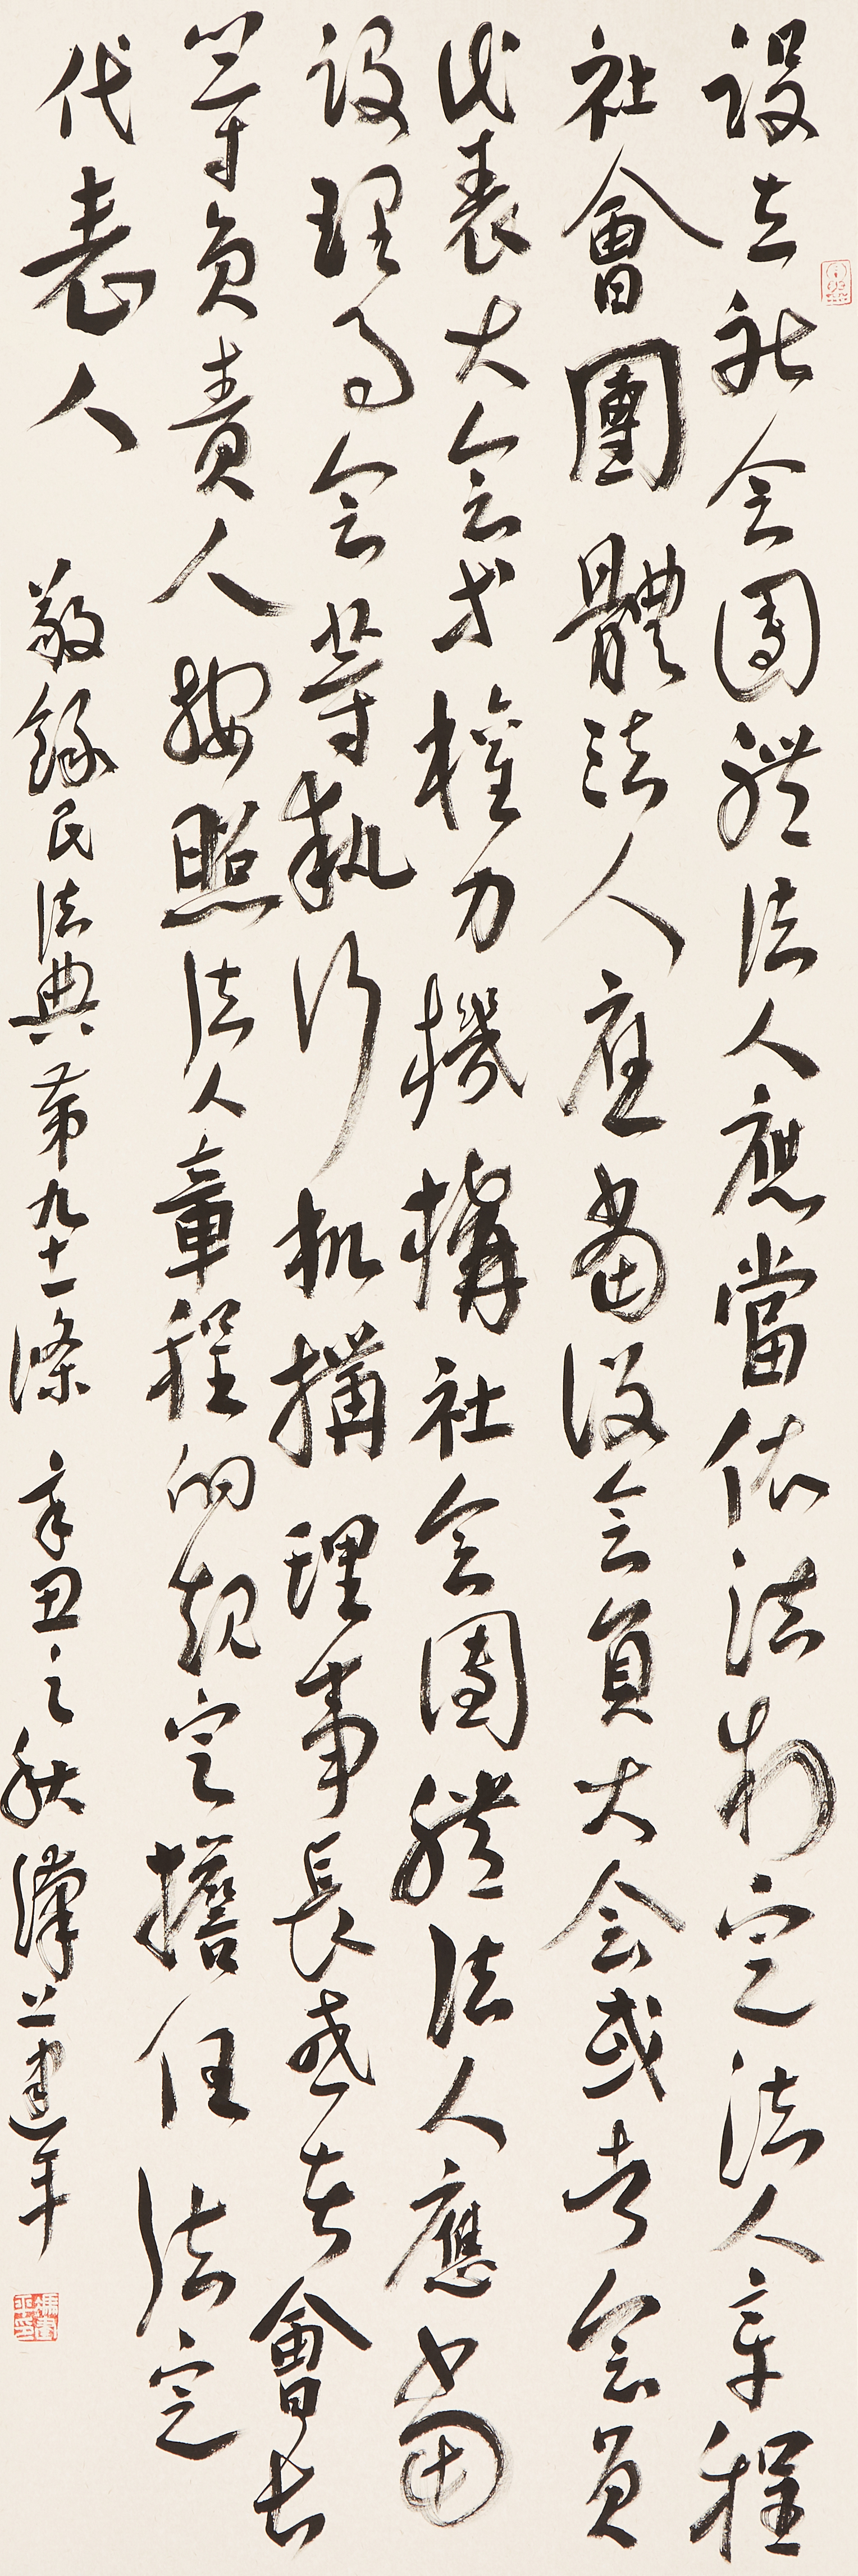 設立社会團體法人應當依法制定法人章程
社會團體法人应當設会員大会或者会員
代表大会等權力機構社会團體法人應當
設理事会等執行机構理事長或者會長
等負責人按照法人章程的規定擔任法定
代表人
敬錄民法典第九十一條 辛丑之秋 建平